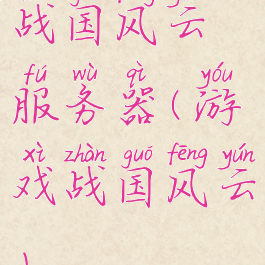 战国风云
fú wù qì yóu
服务器(游
xì zhàn guó fēng yún
戏战国风云
)